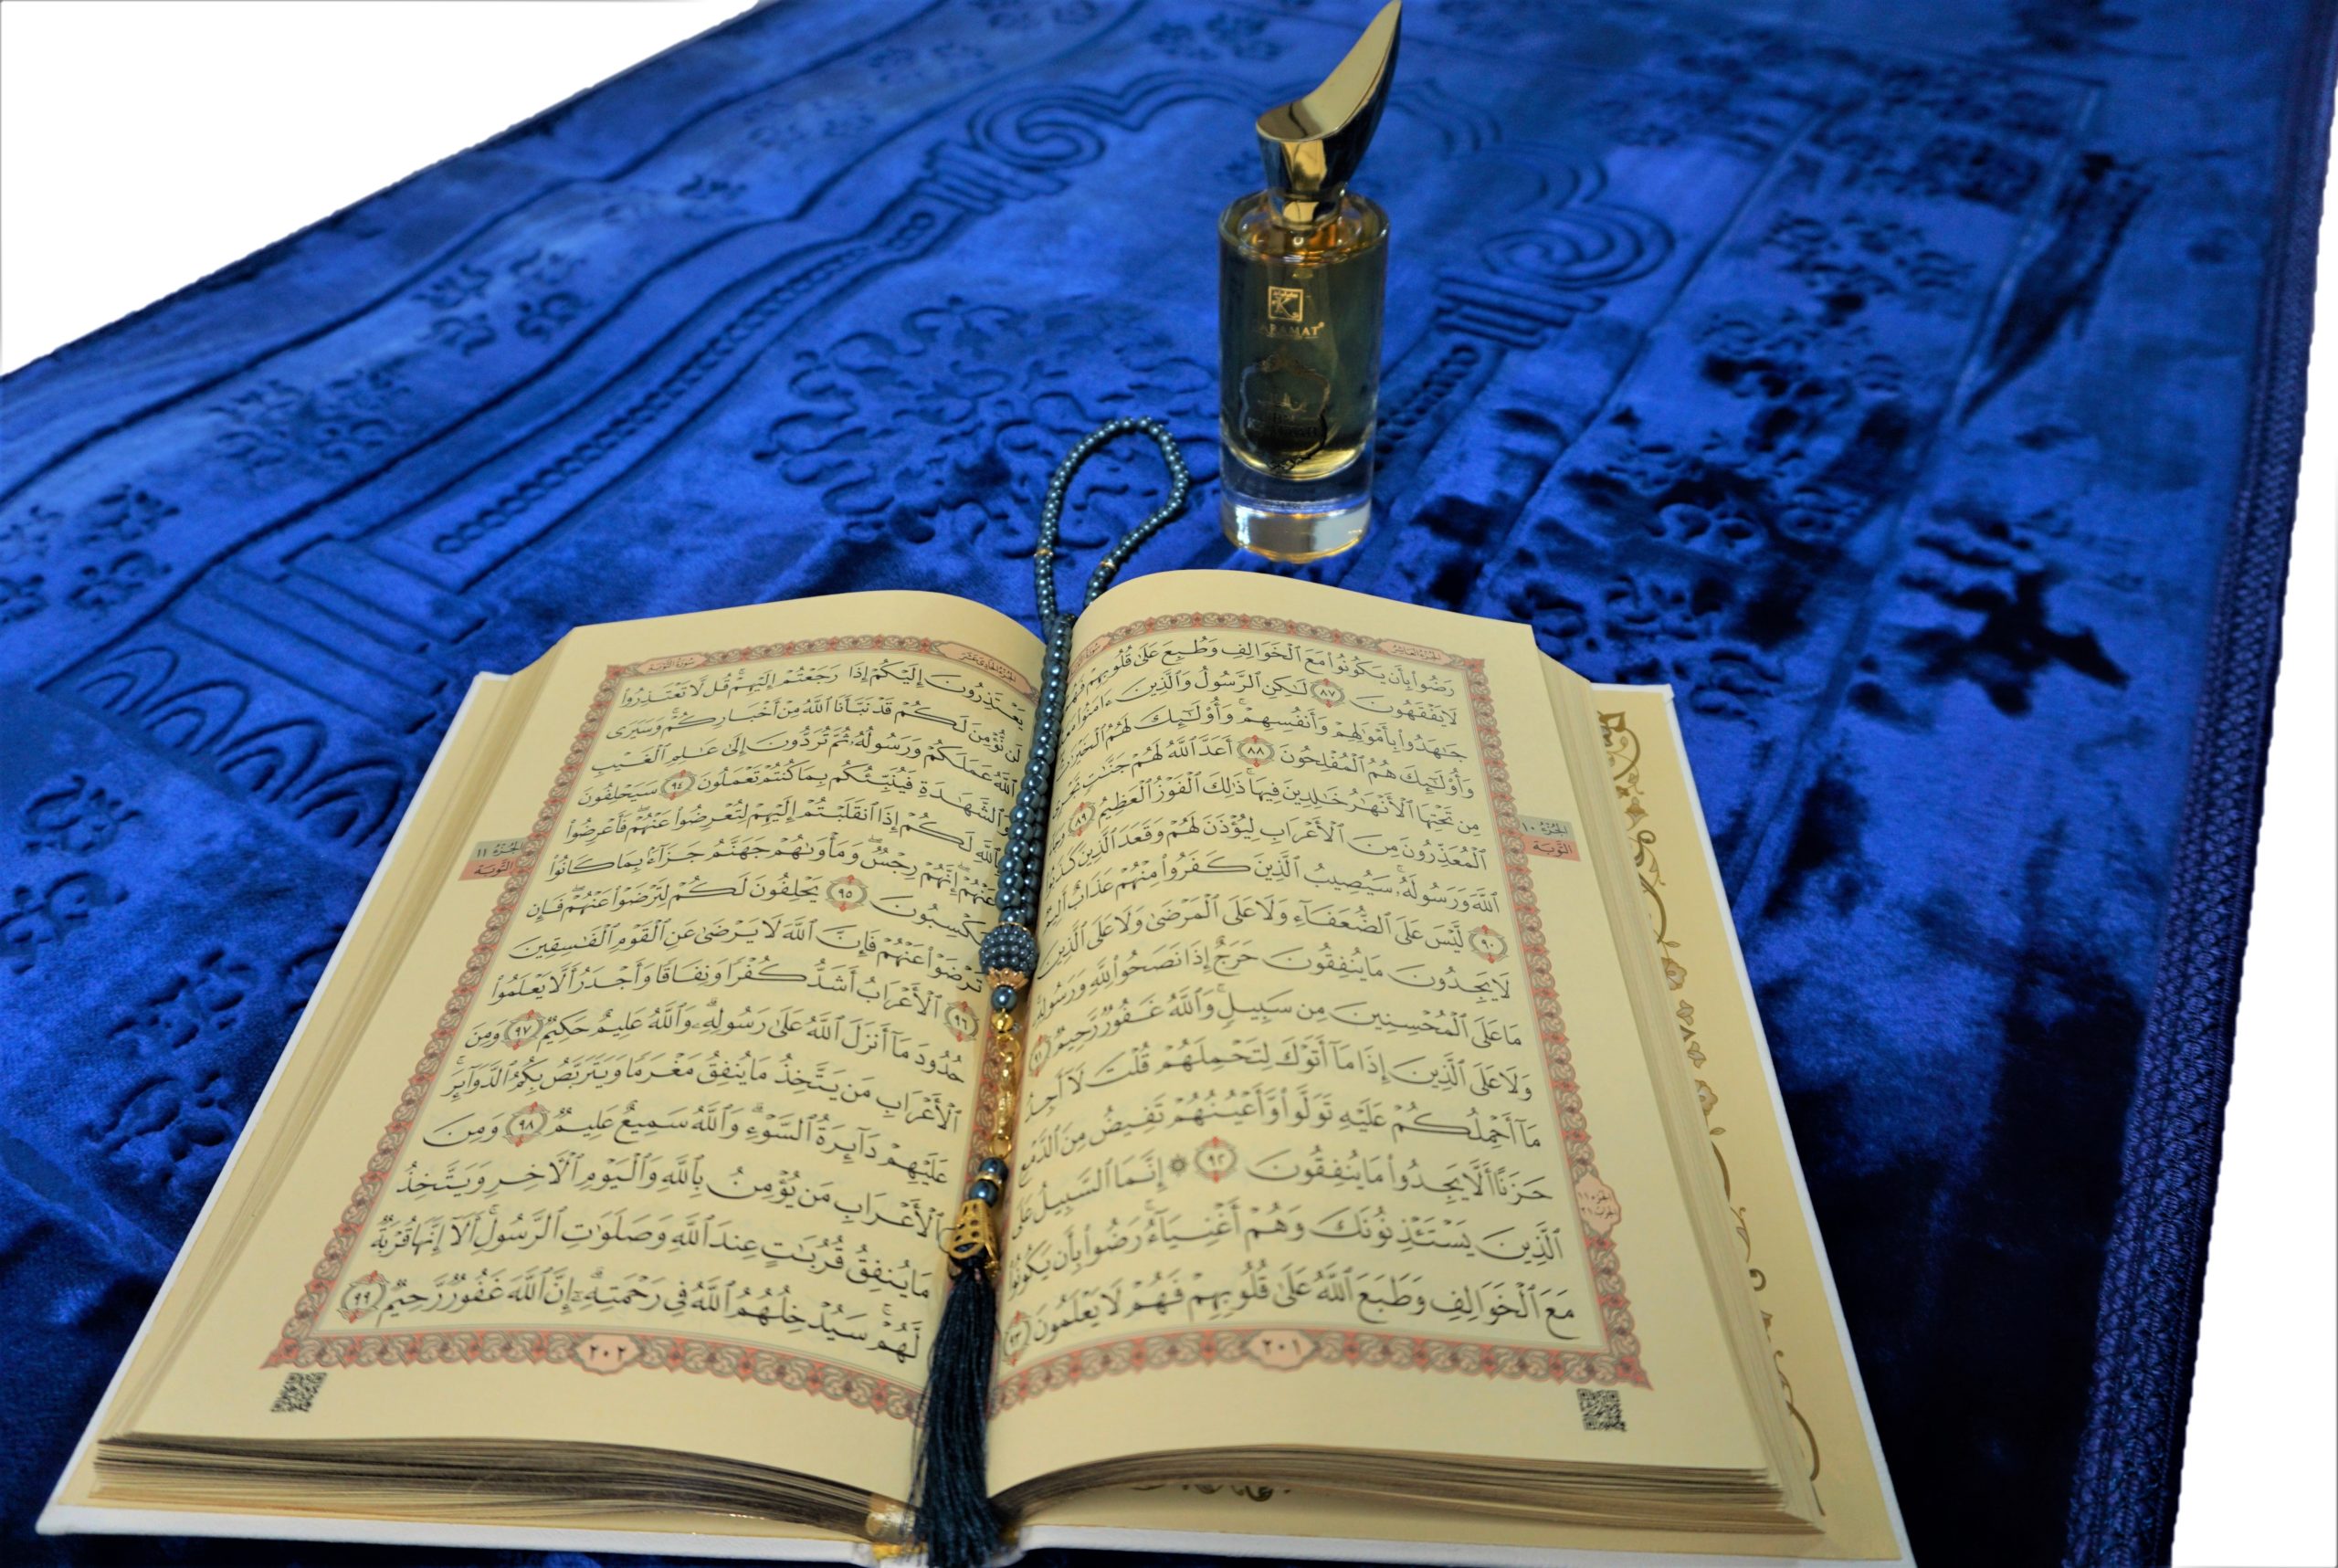 KARAMAT
سورة التوبة
الجزء العاشر
رَضُوا۟ بِأَن يَكُونُوا۟ مَعَ ٱلْخَوَالِفِ وَطُبِعَ عَلَىٰ قُلُوبِهِمْ فَهُمْ
لَا يَفْقَهُونَ ٨٧ لَـٰكِنِ ٱلرَّسُولُ وَٱلَّذِينَ ءَامَنُوا۟ مَعَهُۥ
جَـٰهَدُوا۟ بِأَمْوَٰلِهِمْ وَأَنفُسِهِمْ ۚ وَأُو۟لَـٰٓئِكَ لَهُمُ ٱلْخَيْرَٰتُ
وَأُو۟لَـٰٓئِكَ هُمُ ٱلْمُفْلِحُونَ ٨٨ أَعَدَّ ٱللَّهُ لَهُمْ جَنَّـٰتٍ تَجْرِى
مِن تَحْتِهَا ٱلْأَنْهَـٰرُ خَـٰلِدِينَ فِيهَا ۚ ذَٰلِكَ ٱلْفَوْزُ ٱلْعَظِيمُ ٨٩ وَجَآءَ
ٱلْمُعَذِّرُونَ مِنَ ٱلْأَعْرَابِ لِيُؤْذَنَ لَهُمْ وَقَعَدَ ٱلَّذِينَ كَذَبُوا۟
ٱللَّهَ وَرَسُولَهُۥ ۚ سَيُصِيبُ ٱلَّذِينَ كَفَرُوا۟ مِنْهُمْ عَذَابٌ أَلِيمٌ
٩٠ لَّيْسَ عَلَى ٱلضُّعَفَآءِ وَلَا عَلَى ٱلْمَرْضَىٰ وَلَا عَلَى ٱلَّذِينَ
لَا يَجِدُونَ مَا يُنفِقُونَ حَرَجٌ إِذَا نَصَحُوا۟ لِلَّهِ وَرَسُولِهِۦ ۚ
مَا عَلَى ٱلْمُحْسِنِينَ مِن سَبِيلٍ ۚ وَٱللَّهُ غَفُورٌ رَّحِيمٌ ٩١
وَلَا عَلَى ٱلَّذِينَ إِذَا مَآ أَتَوْكَ لِتَحْمِلَهُمْ قُلْتَ لَآ أَجِدُ
مَآ أَحْمِلُكُمْ عَلَيْهِ تَوَلَّوا۟ وَّأَعْيُنُهُمْ تَفِيضُ مِنَ ٱلدَّمْعِ
حَزَنًا أَلَّا يَجِدُوا۟ مَا يُنفِقُونَ ٩٢ ۞ إِنَّمَا ٱلسَّبِيلُ عَلَى
ٱلَّذِينَ يَسْتَـْٔذِنُونَكَ وَهُمْ أَغْنِيَآءُ ۚ رَضُوا۟ بِأَن يَكُونُوا۟
مَعَ ٱلْخَوَالِفِ وَطَبَعَ ٱللَّهُ عَلَىٰ قُلُوبِهِمْ فَهُمْ لَا يَعْلَمُونَ ٩٣
٢٠١
الجزء ١٠
التوبة
الجزء ١١
الجزء الحادي عشر
سورة التوبة
يَعْتَذِرُونَ إِلَيْكُمْ إِذَا رَجَعْتُمْ إِلَيْهِمْ ۚ قُل لَّا تَعْتَذِرُوا۟
لَن نُّؤْمِنَ لَكُمْ قَدْ نَبَّأَنَا ٱللَّهُ مِنْ أَخْبَارِكُمْ ۚ وَسَيَرَى
ٱللَّهُ عَمَلَكُمْ وَرَسُولُهُۥ ثُمَّ تُرَدُّونَ إِلَىٰ عَـٰلِمِ ٱلْغَيْبِ
وَٱلشَّهَـٰدَةِ فَيُنَبِّئُكُم بِمَا كُنتُمْ تَعْمَلُونَ ٩٤ سَيَحْلِفُونَ
بِٱللَّهِ لَكُمْ إِذَا ٱنقَلَبْتُمْ إِلَيْهِمْ لِتُعْرِضُوا۟ عَنْهُمْ ۖ فَأَعْرِضُوا۟
عَنْهُمْ ۖ إِنَّهُمْ رِجْسٌ ۖ وَمَأْوَىٰهُمْ جَهَنَّمُ جَزَآءًۢ بِمَا كَانُوا۟
يَكْسِبُونَ ٩٥ يَحْلِفُونَ لَكُمْ لِتَرْضَوْا۟ عَنْهُمْ ۖ فَإِن
تَرْضَوْا۟ عَنْهُمْ فَإِنَّ ٱللَّهَ لَا يَرْضَىٰ عَنِ ٱلْقَوْمِ ٱلْفَـٰسِقِينَ
٩٦ ٱلْأَعْرَابُ أَشَدُّ كُفْرًا وَنِفَاقًا وَأَجْدَرُ أَلَّا يَعْلَمُوا۟
حُدُودَ مَآ أَنزَلَ ٱللَّهُ عَلَىٰ رَسُولِهِۦ ۗ وَٱللَّهُ عَلِيمٌ حَكِيمٌ ٩٧ وَمِنَ
ٱلْأَعْرَابِ مَن يَتَّخِذُ مَا يُنفِقُ مَغْرَمًا وَيَتَرَبَّصُ بِكُمُ ٱلدَّوَآئِرَ ۚ
عَلَيْهِمْ دَآئِرَةُ ٱلسَّوْءِ ۗ وَٱللَّهُ سَمِيعٌ عَلِيمٌ ٩٨ وَمِنَ
ٱلْأَعْرَابِ مَن يُؤْمِنُ بِٱللَّهِ وَٱلْيَوْمِ ٱلْـَٔاخِرِ وَيَتَّخِذُ
مَا يُنفِقُ قُرُبَـٰتٍ عِندَ ٱللَّهِ وَصَلَوَٰتِ ٱلرَّسُولِ ۚ أَلَآ إِنَّهَا قُرْبَةٌ
لَّهُمْ ۚ سَيُدْخِلُهُمُ ٱللَّهُ فِى رَحْمَتِهِۦٓ ۗ إِنَّ ٱللَّهَ غَفُورٌ رَّحِيمٌ ٩٩
٢٠٢
الجزء ١١
التوبة